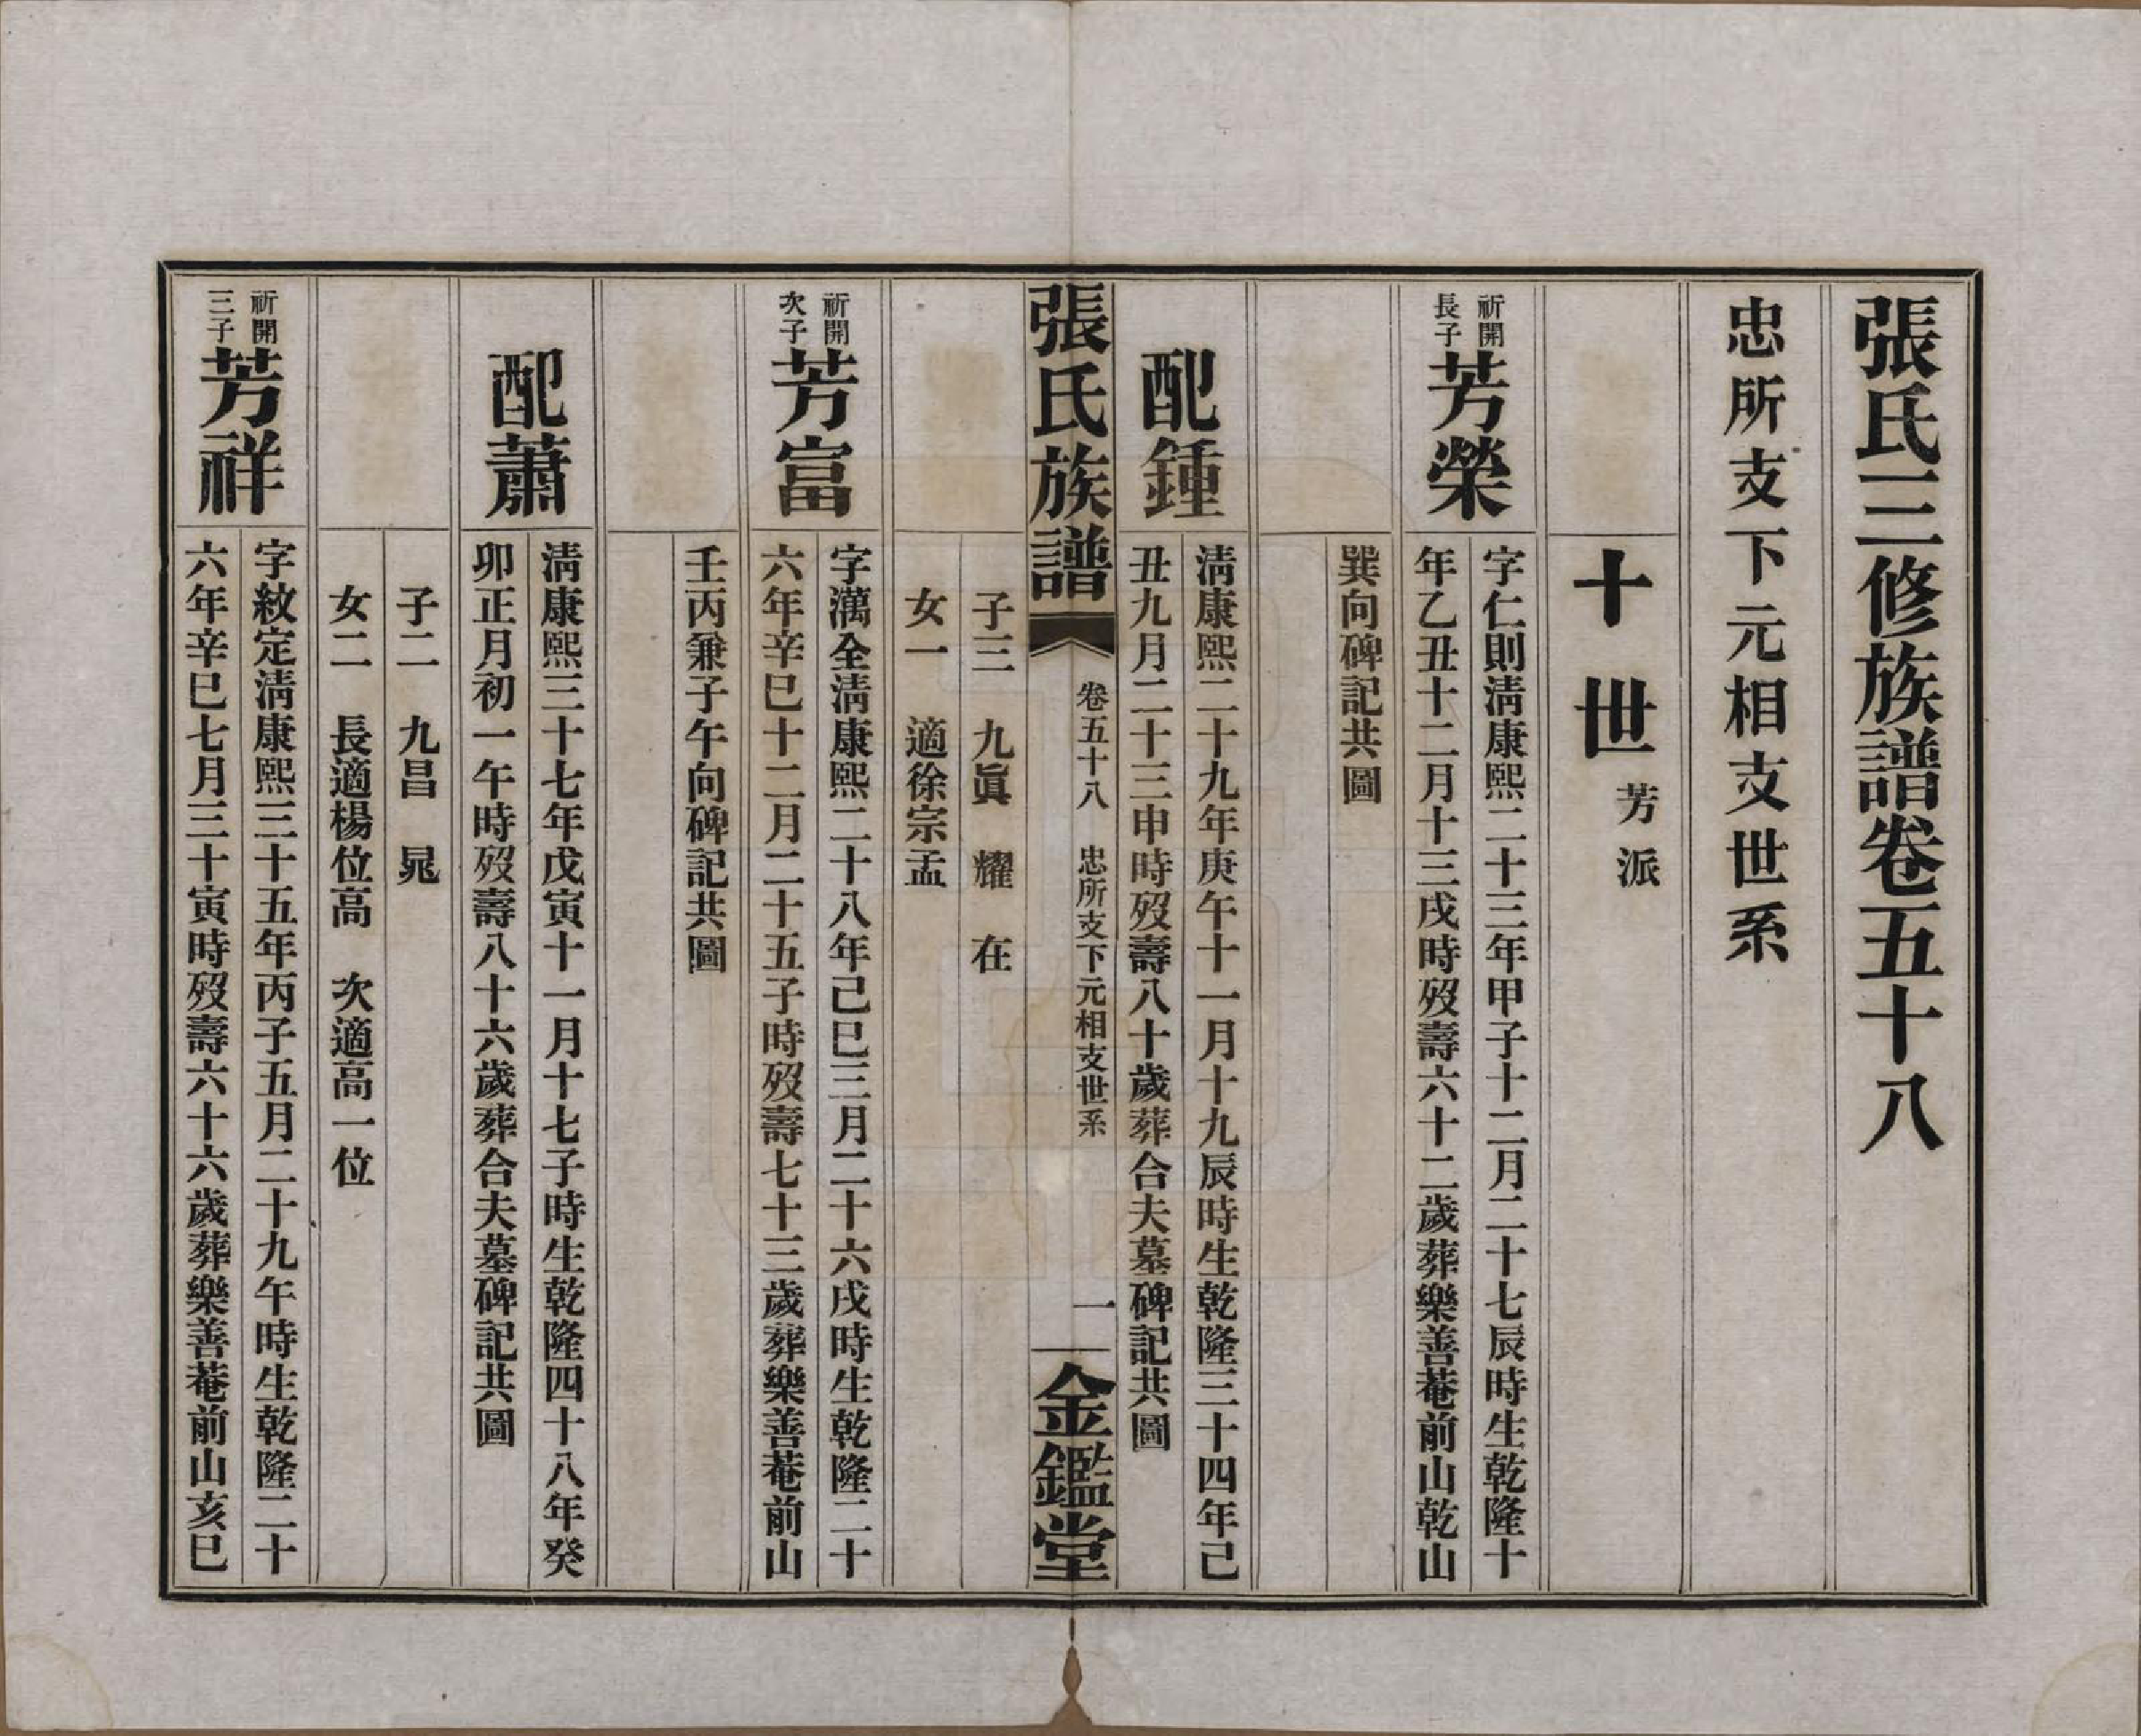 張氏三修族譜卷五十八
忠所支下元相支世系
十世芳派
祈開
長子
芳榮
字仁則淸康熙二十三年甲子十二月二十七辰時生乾隆十
年乙丑十二月十三戌時歿壽六十二歲葬樂善菴前山乾山
巽向碑記共圖
配鍾
淸康熙二十九年庚午十一月十九辰時生乾隆三十四年己
丑九月二十三申時歿壽八十歲葬合夫墓碑記共圖
張氏族譜
卷五十八 忠所支下元相支世系
一
金鑑堂
子三 九眞 耀 在
女一 適徐宗孟
祈開
次子
芳富
字滿全淸康熙二十八年己巳三月二十六戌時生乾隆二十
六年辛巳十二月二十五子時歿壽七十三歲葬樂善菴前山
壬丙兼子午向碑記共圖
配蕭
淸康熙三十七年戊寅十一月十七子時生乾隆四十八年癸
卯正月初一午時歿壽八十六歲葬合夫墓碑記共圖
子二 九昌 晁
女二 長適楊位高 次適高一位
祈開
三子
芳祥
字紋定淸康熙三十五年丙子五月二十九午時生乾隆二十
六年辛巳七月三十寅時歿壽六十六歲葬樂善菴前山亥巳